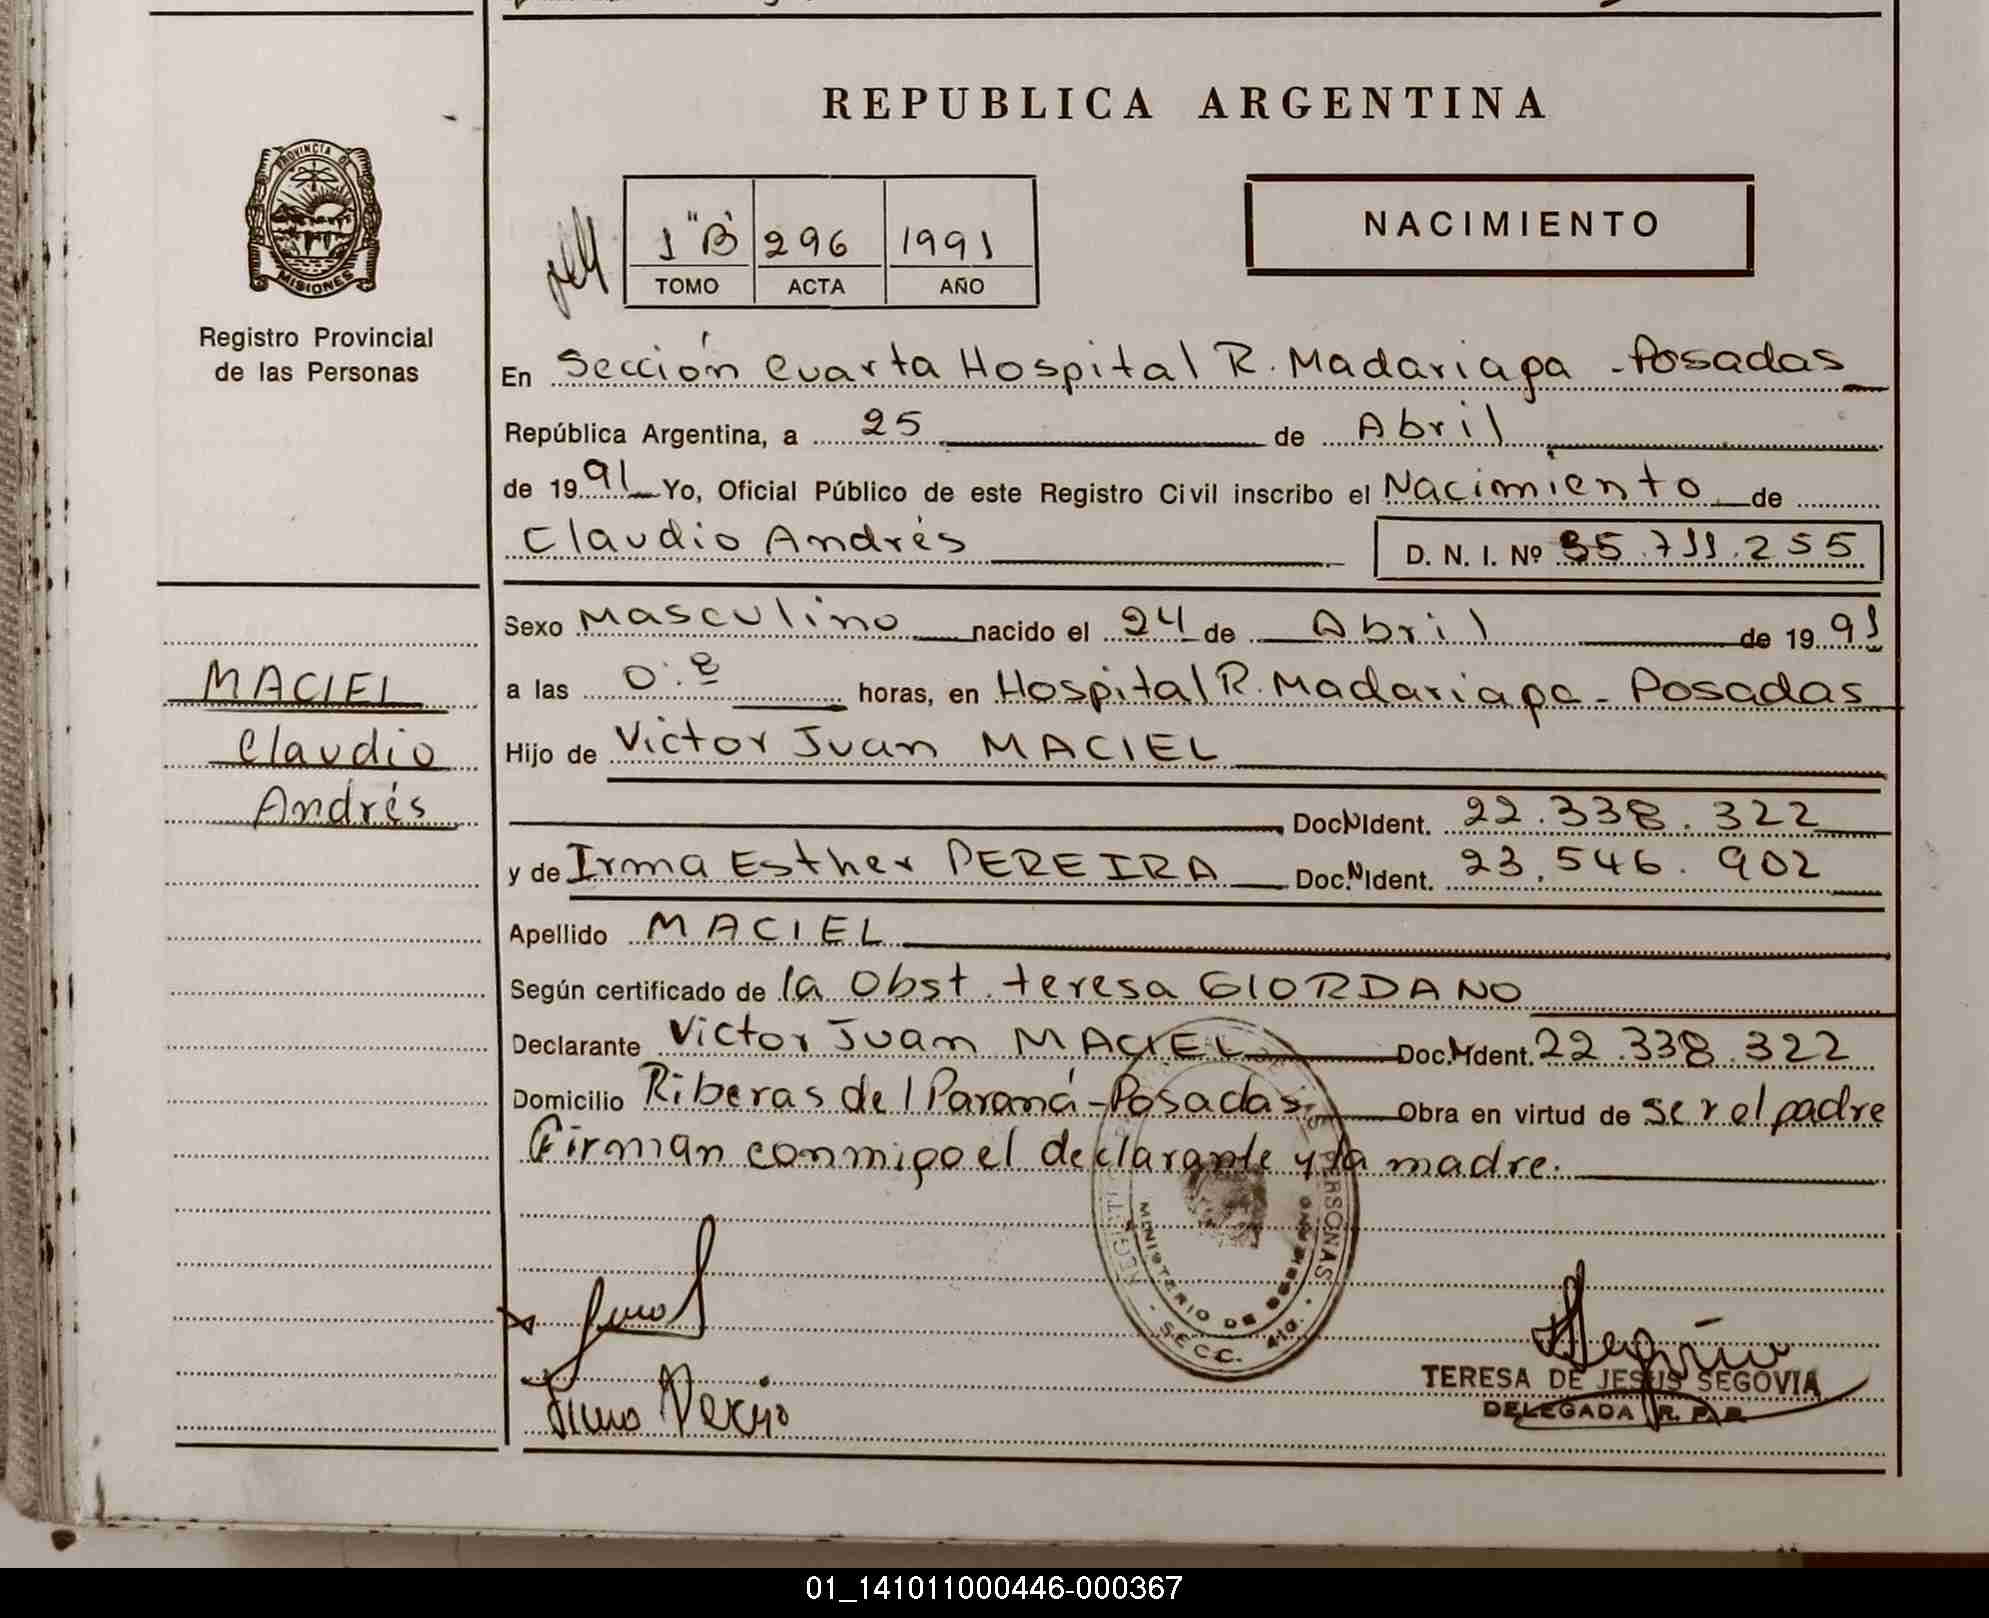 REPUBLICA ARGENTINA
PROVINCIA DE
MISIONES
Registro Provincial
de las Personas
1 "B" 296 1991
TOMO ACTA AÑO
NACIMIENTO
En Sección Cuarta Hospital R. Madariaga - Posadas
República Argentina, a 25 de Abril
de 1991 Yo, Oficial Público de este Registro Civil inscribo el Nacimiento de
Claudio Andrés D. N. I. Nº 35.711.255
Sexo Masculino nacido el 24 de Abril de 1991
a las 0:º horas, en Hospital R. Madariaga - Posadas
Hijo de Victor Juan MACIEL
Doc. N Ident. 22.338.322
y de Irma Esther PEREIRA Doc. N Ident. 23.546.902
Apellido MACIEL
Según certificado de la Obst. teresa GIORDANO
Declarante Victor Juan MACIEL Doc. N Ident. 22.338.322
Domicilio Riberas del Paraná - Posadas Obra en virtud de ser el padre
Firman conmigo el declarante y la madre.
MACIEL
Claudio
Andrés
PERSONAS
MINISTERIO DE GOBIERNO
SECC. 4ta.
TERESA DE JESUS SEGOVIA
DELEGADA R. P. P.
01_141011000446-000367